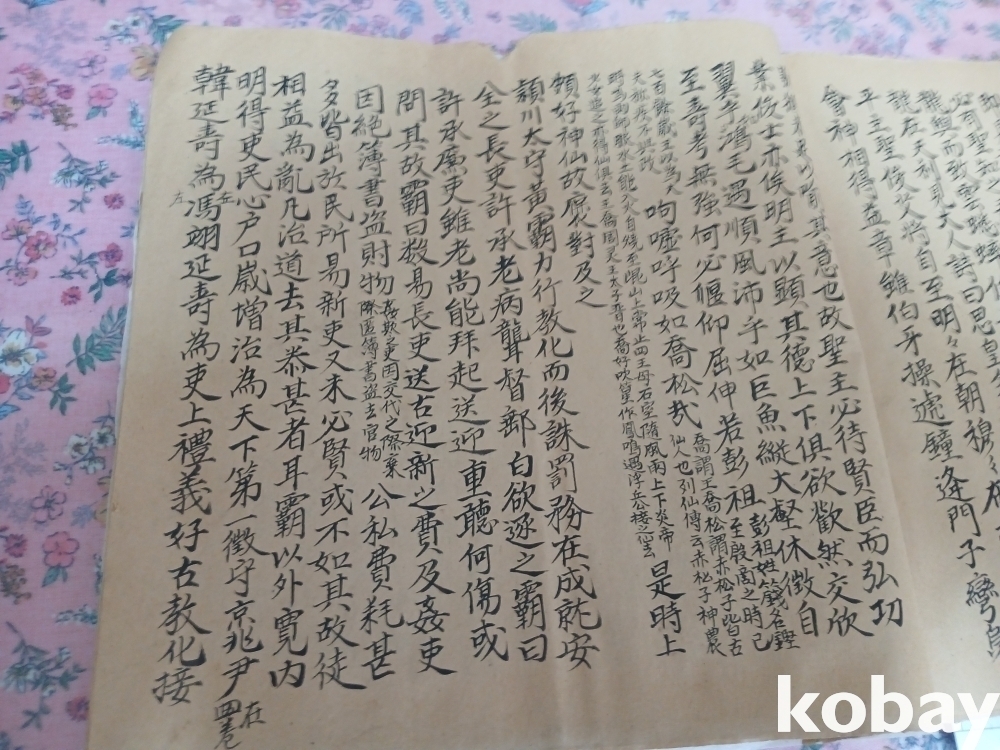 說若天利見大人詩曰思皇
平主聖俊乂將自至明々在朝穆
會神相得益章雖伯牙操遞鐘逢門子彎
其意也故聖主必待賢臣而弘功
業俊士亦俟明主以顯其德上下俱欲歡然交欣
翼乎鴻毛遇順風沛乎如巨魚縱大壑休徵自
至壽考無强何必偃仰屈伸若彭祖彭祖姓籛名鏗至殷周之時已
七百餘歲王以為大夫 呴噓呼吸如喬松哉喬謂王喬松謂赤松子皆古仙人也列仙傳云赤松子神農
時為雨師服水玉能入火自燒至崑山上常止西王母石室隨風雨上下炎帝
少女追之亦得仙俱去王喬周灵王太子晋也喬好吹笙作鳳鳴遇浮丘公接之仙去 是時上
頗好神仙故褒對及之
潁川太守黃霸力行教化而後誅罰務在成就安
全之長吏許承老病聾督郵白欲逐之霸曰
許承廉吏雖老尚能拜起送迎重聽何傷或
問其故霸曰數易長吏送古迎新之費及姦吏
因絕簿書盜財物姦欺之吏因交代之際棄除匿簿書盜去官物 公私費耗甚
多皆出於民所易新吏又未必賢或不如其故徒
相益為亂凡治道去其泰甚者耳霸以外寬內
明得吏民心戶口歲增治為天下第一徵守京兆尹在四卷
韓延壽為馮翊延壽為吏上禮義好古教化接
左